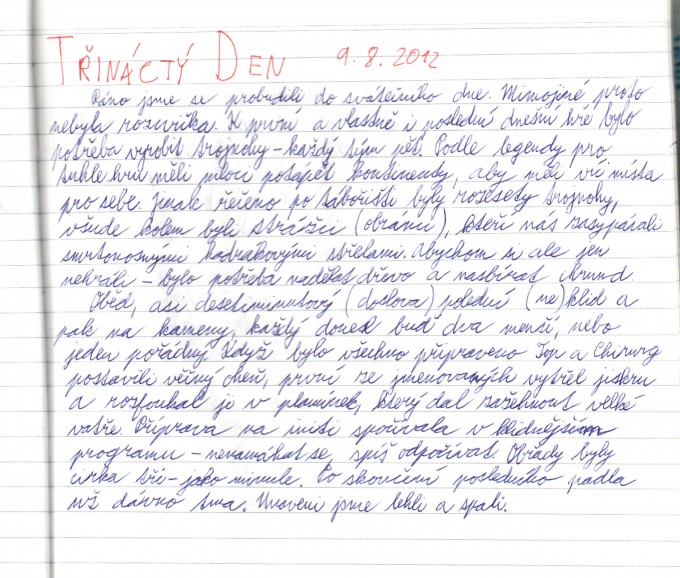 TŘINÁCTÝ DEN 9.8.2012
Ráno jsme se probudili do svátečního dne. Mimojiné proto
nebyla rozcvička. K první a vlastně i poslední dnešní hře bylo
potřeba vyrobit trojnohy – každý tým pět. Podle legendy pro
tuhle hru měli mloci potápět kontinenty, aby měli víc místa
pro sebe. Jinak řečeno po tábořišti byly rozesety trojnohy,
všude kolem byli strážci (obránci), kteří nás zasypávali
smrtonosnými hadrákovými střelami. Abychom si ale jen
nehráli – bylo potřeba nadělat dřevo a nasbírat chrund.
Oběd, asi desetiminutový (doslova) polední (ne)klid a
pak na kameny, každý donesl buď dva menší, nebo
jeden pořádný. Když bylo všechno připraveno Top a Chirurg
postavili věčný oheň, první ze jmenovaných vytřel jiskru
a rozfoukal je v plamínek, který dal zažehnout velké
vatře. Příprava na místě spočívala v klidnějším
programu – nenamáhat se, spíš odpočívat. Obřady byly
cirka tři – jako minule. Po skončení posledního padla
už dávno tma. Unaveni jsme lehli a spali.